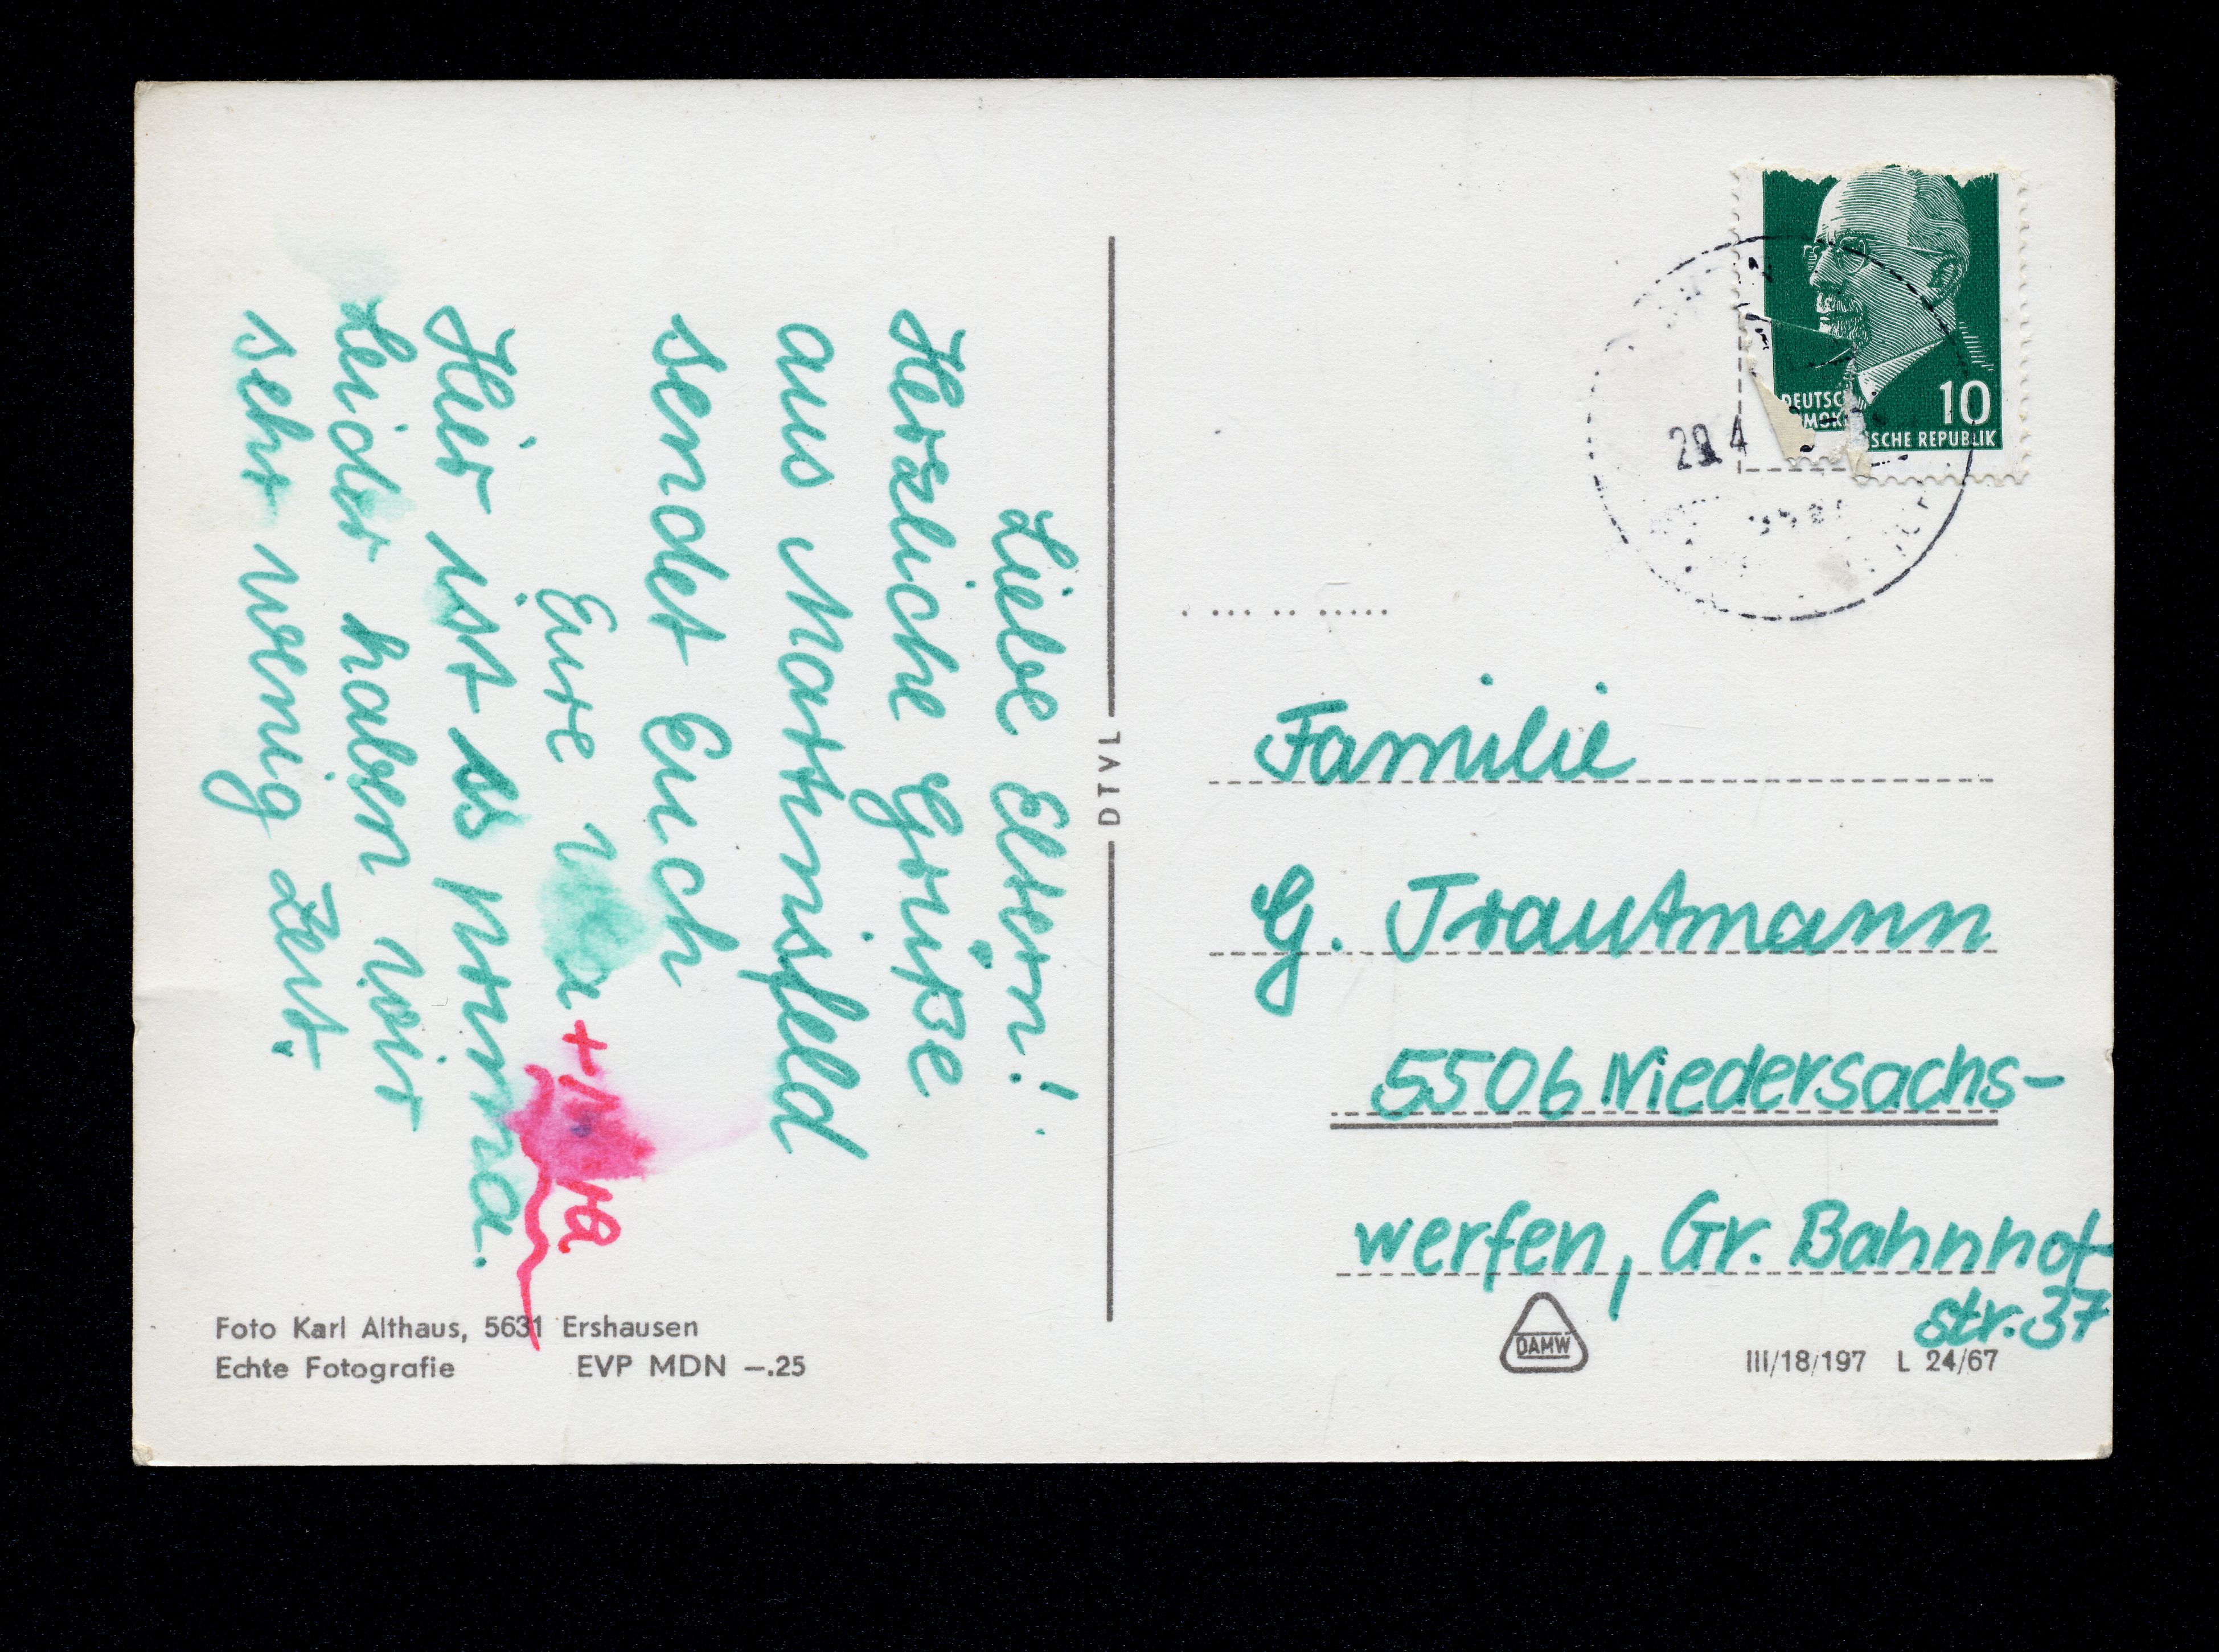 Liebe Eltern!
Herzliche Grüße
aus Martinsfeld
sendet Euch
Eure
Hier ist es prima.
Leider haben wir
sehr wenig Zeit.
Foto Karl Althaus, 5631 Ershausen
Echte Fotografie EVP MDN —.25
DTVL
10
DEUTSC
MOK
ISCHE REPUBLIK
29.4
Familie
G. Trautmann
5506 Niedersachs-
werfen, Gr. Bahnhof
str. 37
DAMW
III/18/197 L 24/67